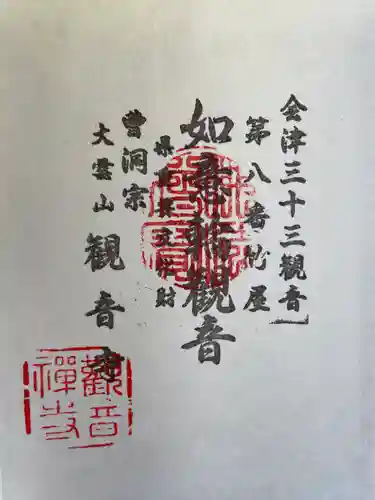 会津三十三観音
第八番竹屋
如意輪観音
県重要文化財
曹洞宗
大雲山
観音寺
観音禅寺